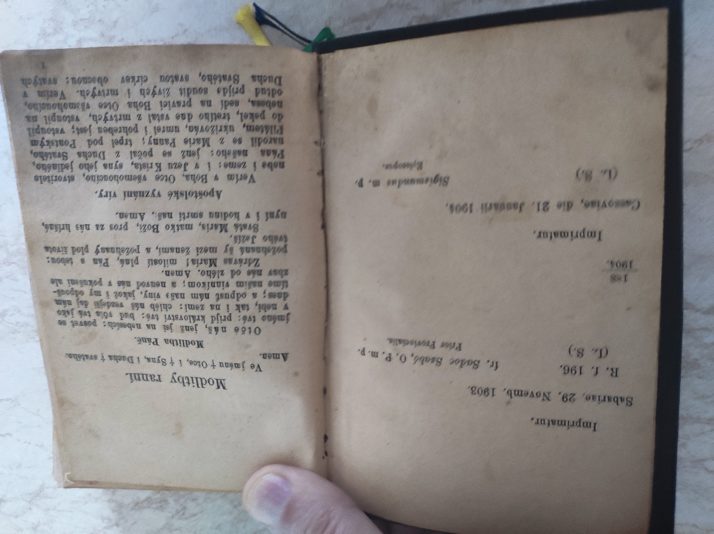 Imprimatur.
Sabariae, 29. Novemb. 1903.
R. f. 196. fr. Sadoc Szabó, O. P. m. p.
(L. S.) Prior Provincialis.
188
1904.
Imprimatur.
Cassoviae, die 21. Januarii 1904.
(L. S.) Sigismundus m. p.
Episcopus.
Modlitby ranní.
Ve jménu † Otce, i † Syna, i Ducha † svatého.
Amen.
Modlitba Páně.
Otče náš, jenž jsi na nebesích: posvět se
jméno tvé: přijď království tvé: buď vůla tvá jako
v nebi, tak i na zemi: chléb náš vezdejší daj nám
dnes; a odpusť nám naše viny, jakož i my odpoúš-
tíme našim vinníkom; a nevoď nás v pokušení ale
zbav nás od zlého. Amen.
Zdrávas Maria! milosti plná, Pán s tebou:
požehnaná ty mezi ženami, a požehnaný plod života
tvého Ježíš.
Svatá Maria, matko Boží, pros za nás hříšné,
nyní i v hodinu smrti naší. Amen.
Apoštolské vyznání víry.
Verím v Boha, Otce všemohoucího, stvoritele
neba i zeme: i v Jezu Krista, syna jeho jediného,
Pána našeho: jenž se počal z Ducha Svatého,
narodil se z Marie Panny; trpel pod Pontským
Pilátem, ukrižován, umrel i pohreben jest; vstoupil
do pekel, tretího dne vstal z mrtvých, vstoupil na
nebesa, sedí na pravici Boha Otce všemohoucího,
odtud prijde soudit živých i mrtvých. Verím v
Ducha Svatého, svatou církev obecnou; svatých